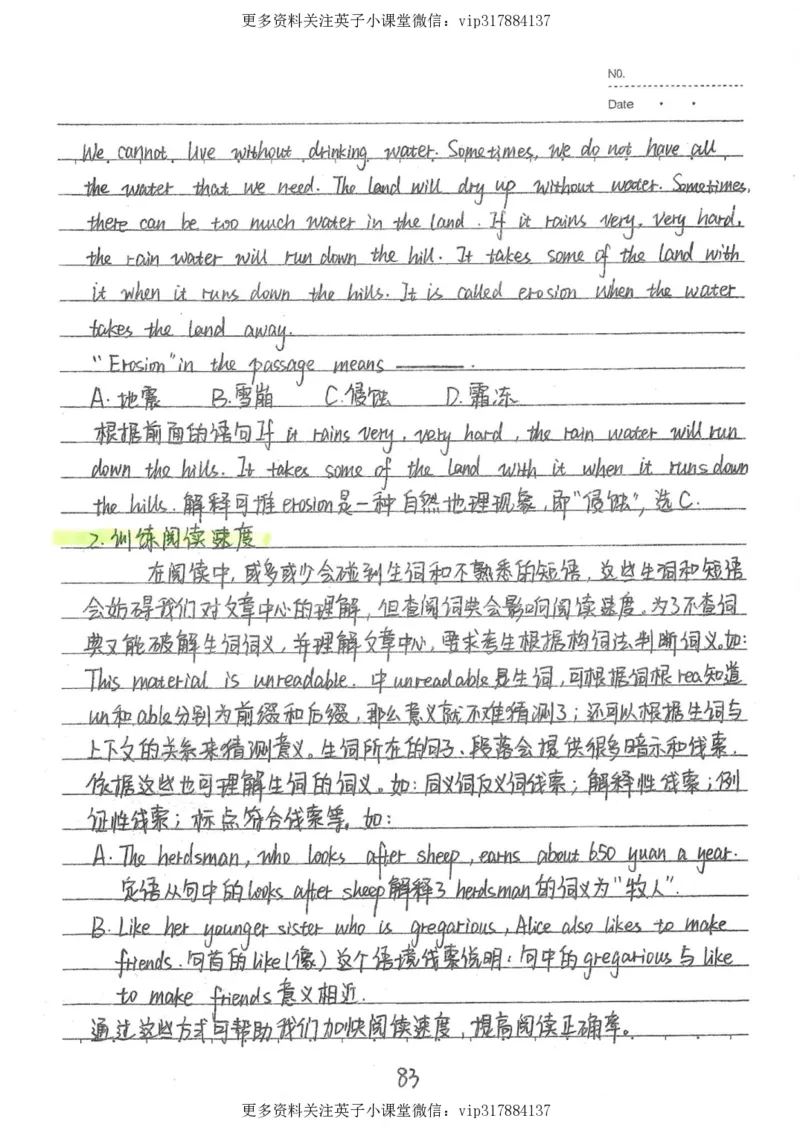 更多资料关注英子小课堂微信：vip317884137
NO.
Date
We cannot live without drinking water. Sometimes, we do not have all
the water that we need. The land will dry up without water. Sometimes,
there can be too much water in the land. If it rains very, very hard,
the rain water will run down the hill. It takes some of the land with
it when it runs down the hills. It is called erosion when the water
takes the land away.
"Erosion" in the passage means ______.
A. 地震 B. 雪崩 C. 侵蚀 D. 霜冻
根据前面的语句If it rains very, very hard, the rain water will run
down the hills. It takes some of the land with it when it runs down
the hills. 解释可推erosion是一种自然地理现象，即"侵蚀"，选C.
2. 训练阅读速度
在阅读中，或多或少会碰到生词和不熟悉的短语，这些生词和短语
会妨碍我们对文章中心的理解，但查阅词典会影响阅读速度。为了不查词
典又能破解生词词义，并理解文章中心，要求考生根据构词法判断词义。如：
This material is unreadable. 中unreadable是生词，可根据词根rea知道
un和able分别为前缀和后缀，那么意义就不难猜测了；还可以根据生词与
上下文的关系来猜测意义。生词所在的句子、段落会提供很多暗示和线索，
依据这些也可理解生词的词义。如：同义词反义词线索；解释性线索；例
证性线索；标点符合线索等，如：
A. The herdsman, who looks after sheep, earns about 650 yuan a year.
定语从句中的looks after sheep解释了herdsman的词义为"牧人".
B. Like her younger sister who is gregarious, Alice also likes to make
friends. 句首的like(像)这个语境线索说明：句中的gregarious与like
to make friends意义相近.
通过这些方式可帮助我们加快阅读速度，提高阅读正确率。
83
更多资料关注英子小课堂微信：vip317884137